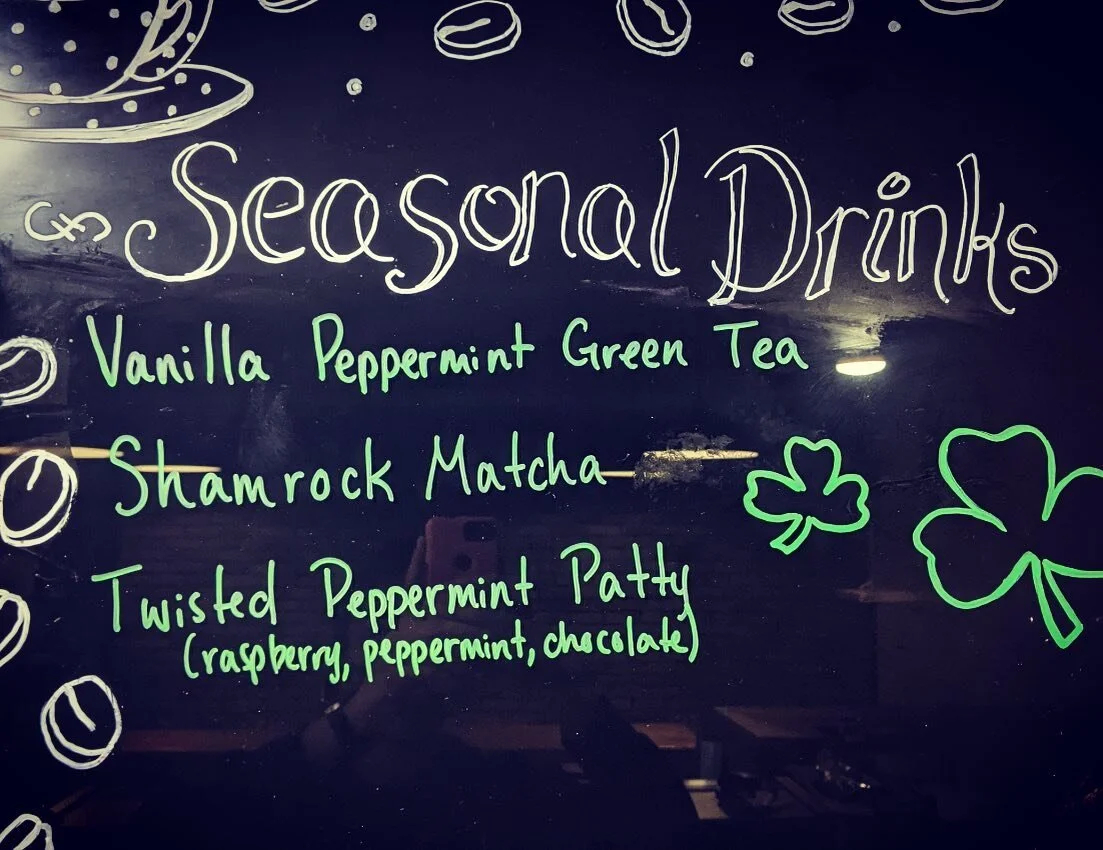 Seasonal Drinks
Vanilla Peppermint Green Tea
Shamrock Matcha
Twisted Peppermint Patty
(raspberry, peppermint, chocolate)